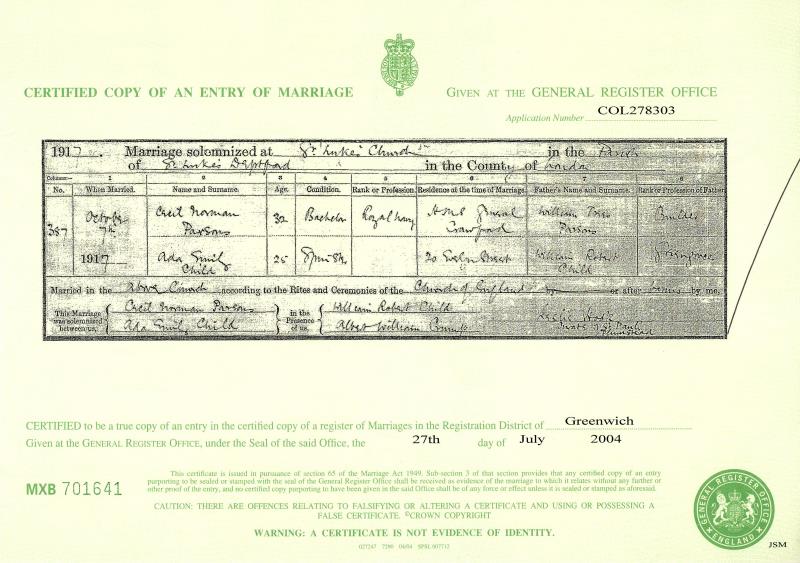 CERTIFIED COPY OF AN ENTRY OF MARRIAGE
GIVEN AT THE GENERAL REGISTER OFFICE
Application Number COL278303
1917. Marriage solemnized at St. Luke's Church in the Parish
of St. Luke's Deptford in the County of London
Columns:— 1 2 3 4 5 6 7 8
No. When Married. Name and Surname. Age. Condition. Rank or Profession. Residence at the time of Marriage. Father's Name and Surname. Rank or Profession of Father
387 October 7th 1917
Cecil Norman Parsons 32 Bachelor Royal Navy HMS General Craufurd William Parsons Builder
Ada Emily Child 25 Spinster 20 Evelyn Street William Robert Child
Married in the above Church according to the Rites and Ceremonies of the Church of England by or after Banns by me,
This Marriage was solemnized between us, Cecil Norman Parsons
Ada Emily Child
in the Presence of us, William Robert Child
Albert William Crump
CERTIFIED to be a true copy of an entry in the certified copy of a register of Marriages in the Registration District of Greenwich
Given at the GENERAL REGISTER OFFICE, under the Seal of the said Office, the 27th day of July 2004
MXB 701641
This certificate is issued in pursuance of section 65 of the Marriage Act 1949. Sub-section 3 of that section provides that any certified copy of an entry
purporting to be sealed or stamped with the seal of the General Register Office shall be received as evidence of the marriage to which it relates without any further or
other proof of the entry, and no certified copy purporting to have been given in the said Office shall be of any force or effect unless it is sealed or stamped as aforesaid.
CAUTION: THERE ARE OFFENCES RELATING TO FALSIFYING OR ALTERING A CERTIFICATE AND USING OR POSSESSING A
FALSE CERTIFICATE. ©CROWN COPYRIGHT
WARNING: A CERTIFICATE IS NOT EVIDENCE OF IDENTITY.
GENERAL REGISTER OFFICE
ENGLAND
JSM